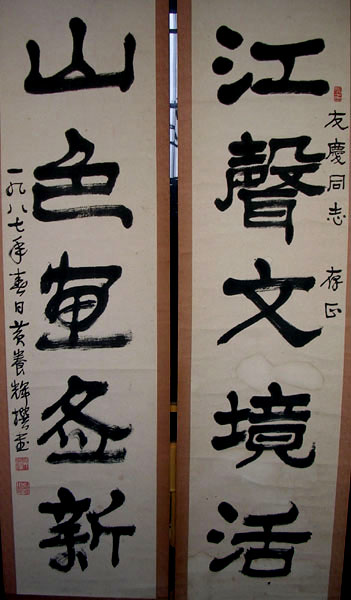 友慶同志 存正
江聲文境活
山色新
一九八七年春日黃養輝撰書